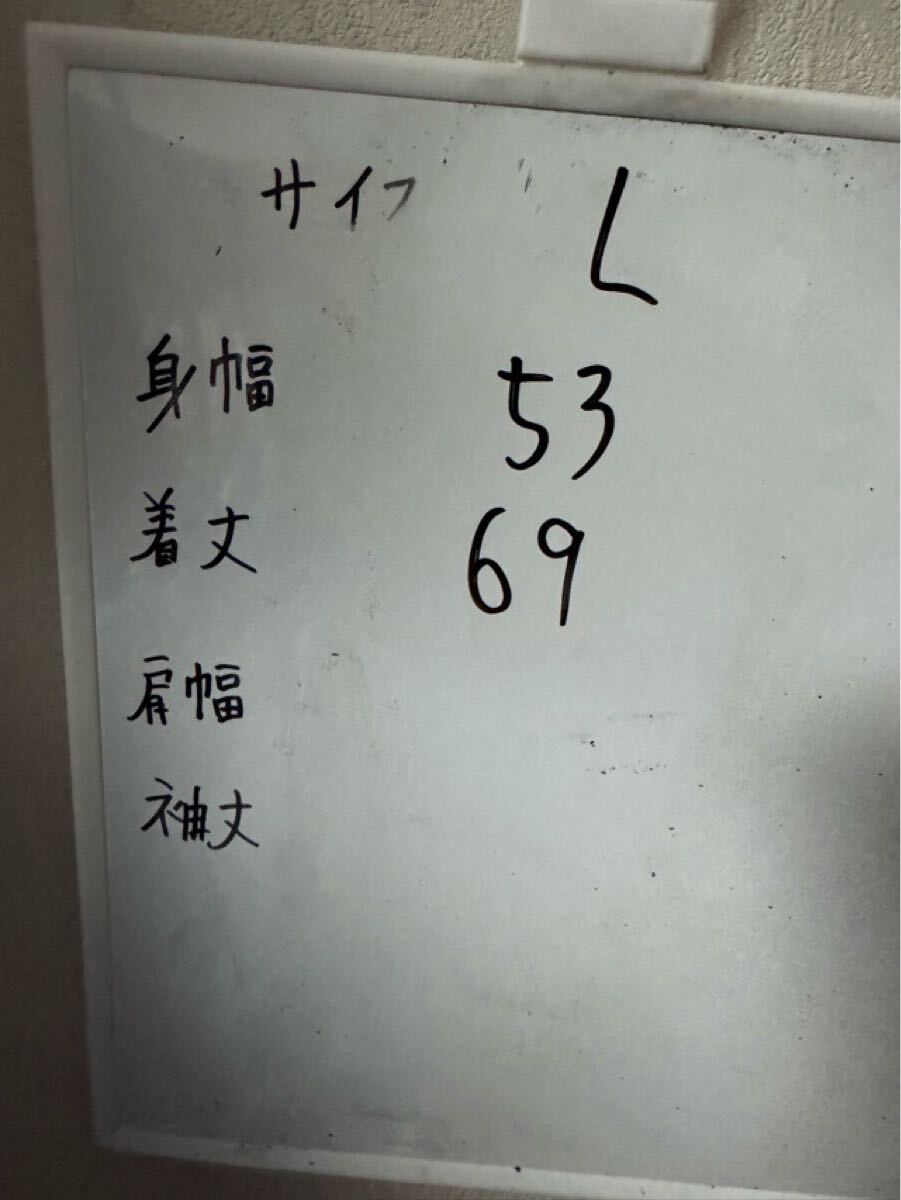 サイフ L
身幅 53
着丈 69
肩幅
袖丈